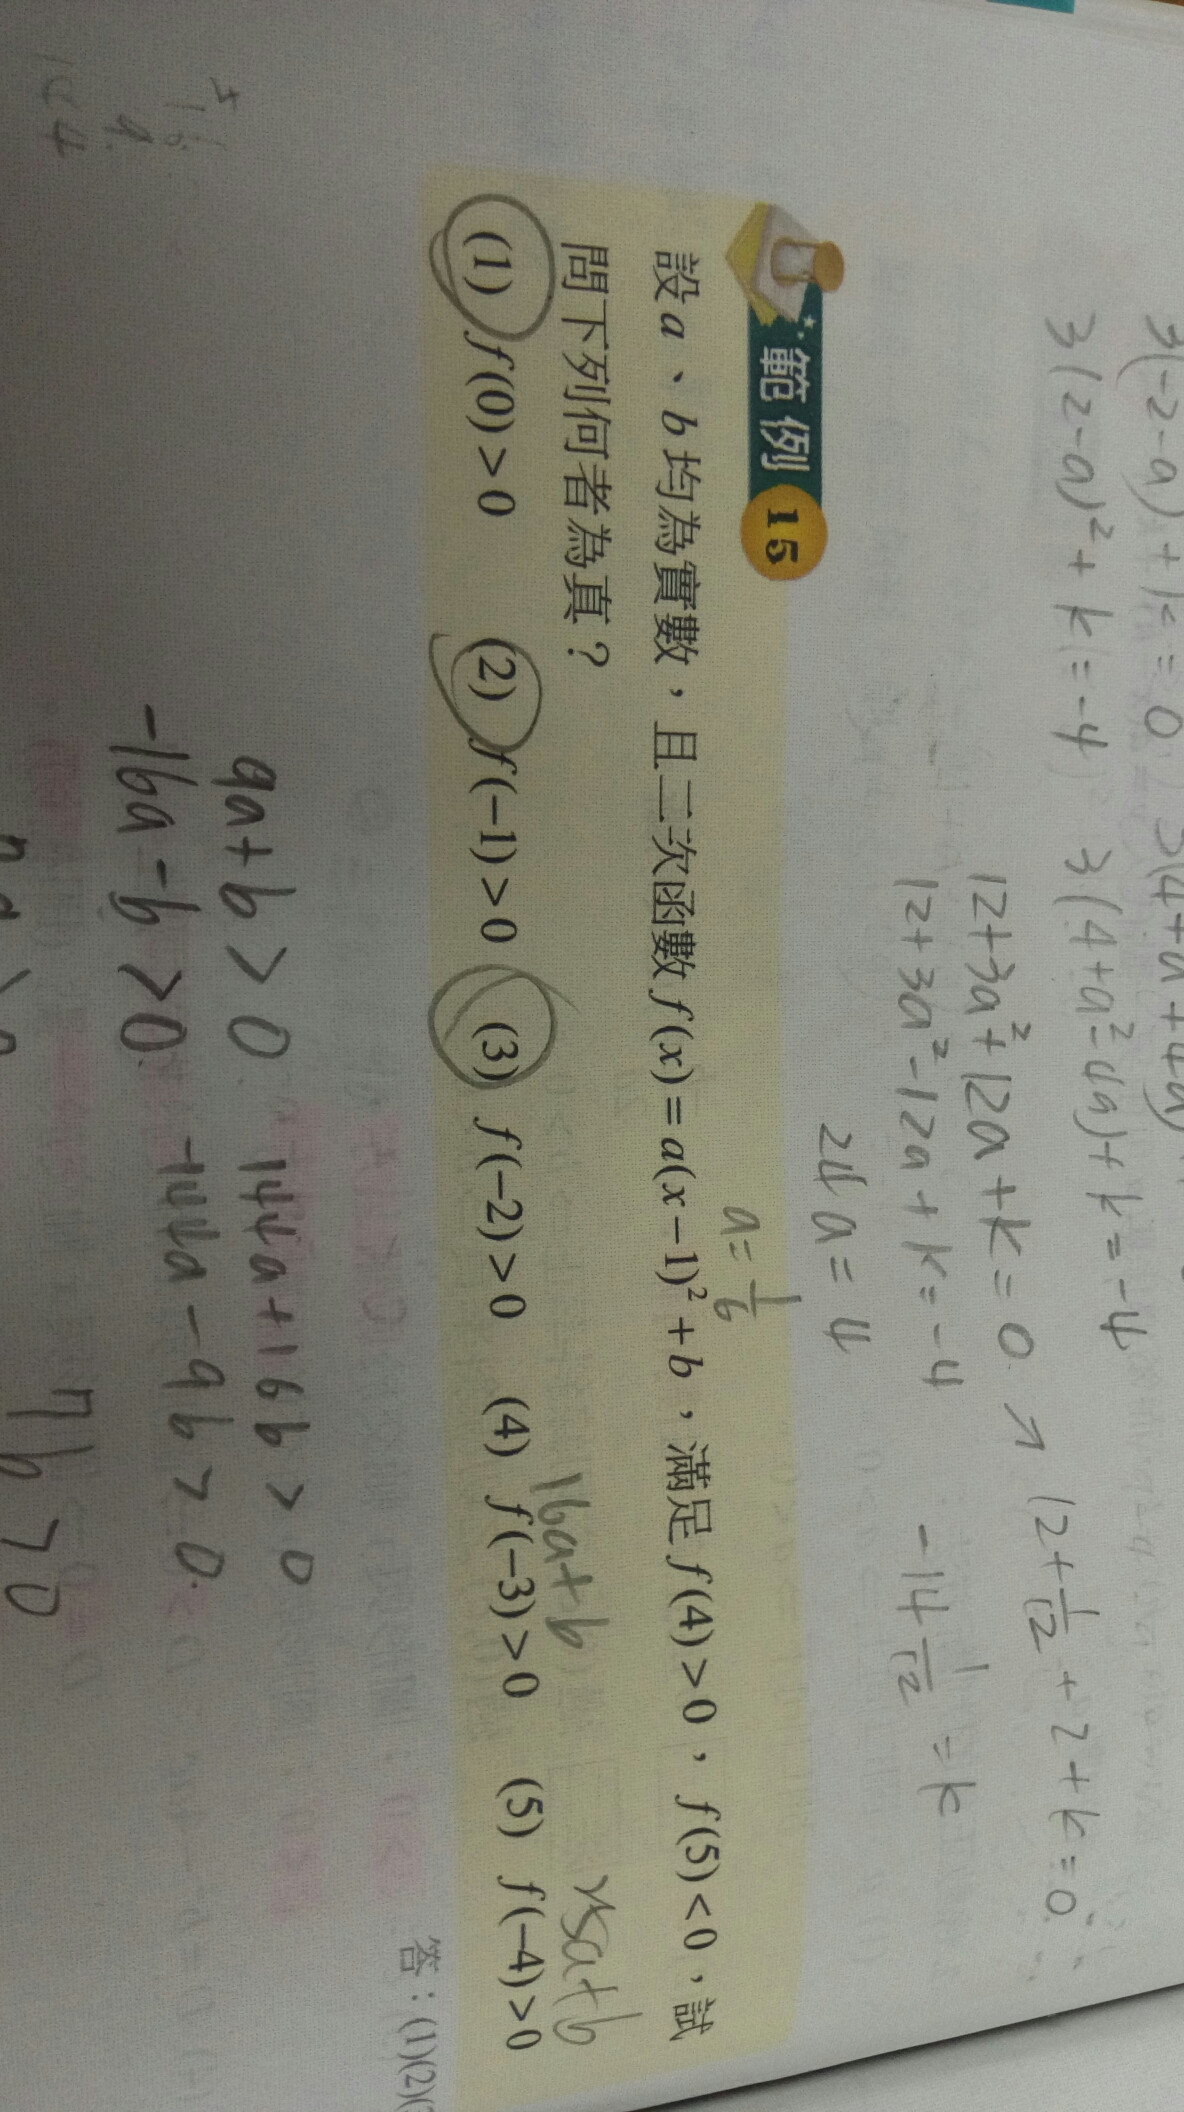 3(-2-a) + k = 0
3(2-a)² + k = -4
3(4+a²-4a)+k=-4
12+3a²+12a+k=0
12+3a²-12a+k=-4
24a=4
a=1/6
12+1/12+2+k=0
-14 1/12 = k
範例 15
設a、b均為實數,且二次函數f(x)=a(x-1)²+b,滿足f(4)>0,f(5)<0,試
問下列何者為真?
16a+b
(1) f(0)>0 (2) f(-1)>0 (3) f(-2)>0 (4) f(-3)>0 (5) f(-4)>0
答:(1)(2)
9a+b>0
-16a-b>0
144a+16b>0
-144a-9b>0
7b>0